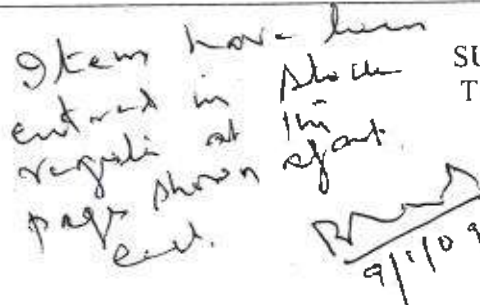 Items have been
entered in stock
register at the
page shown against
each.
SU
T
9/1/09